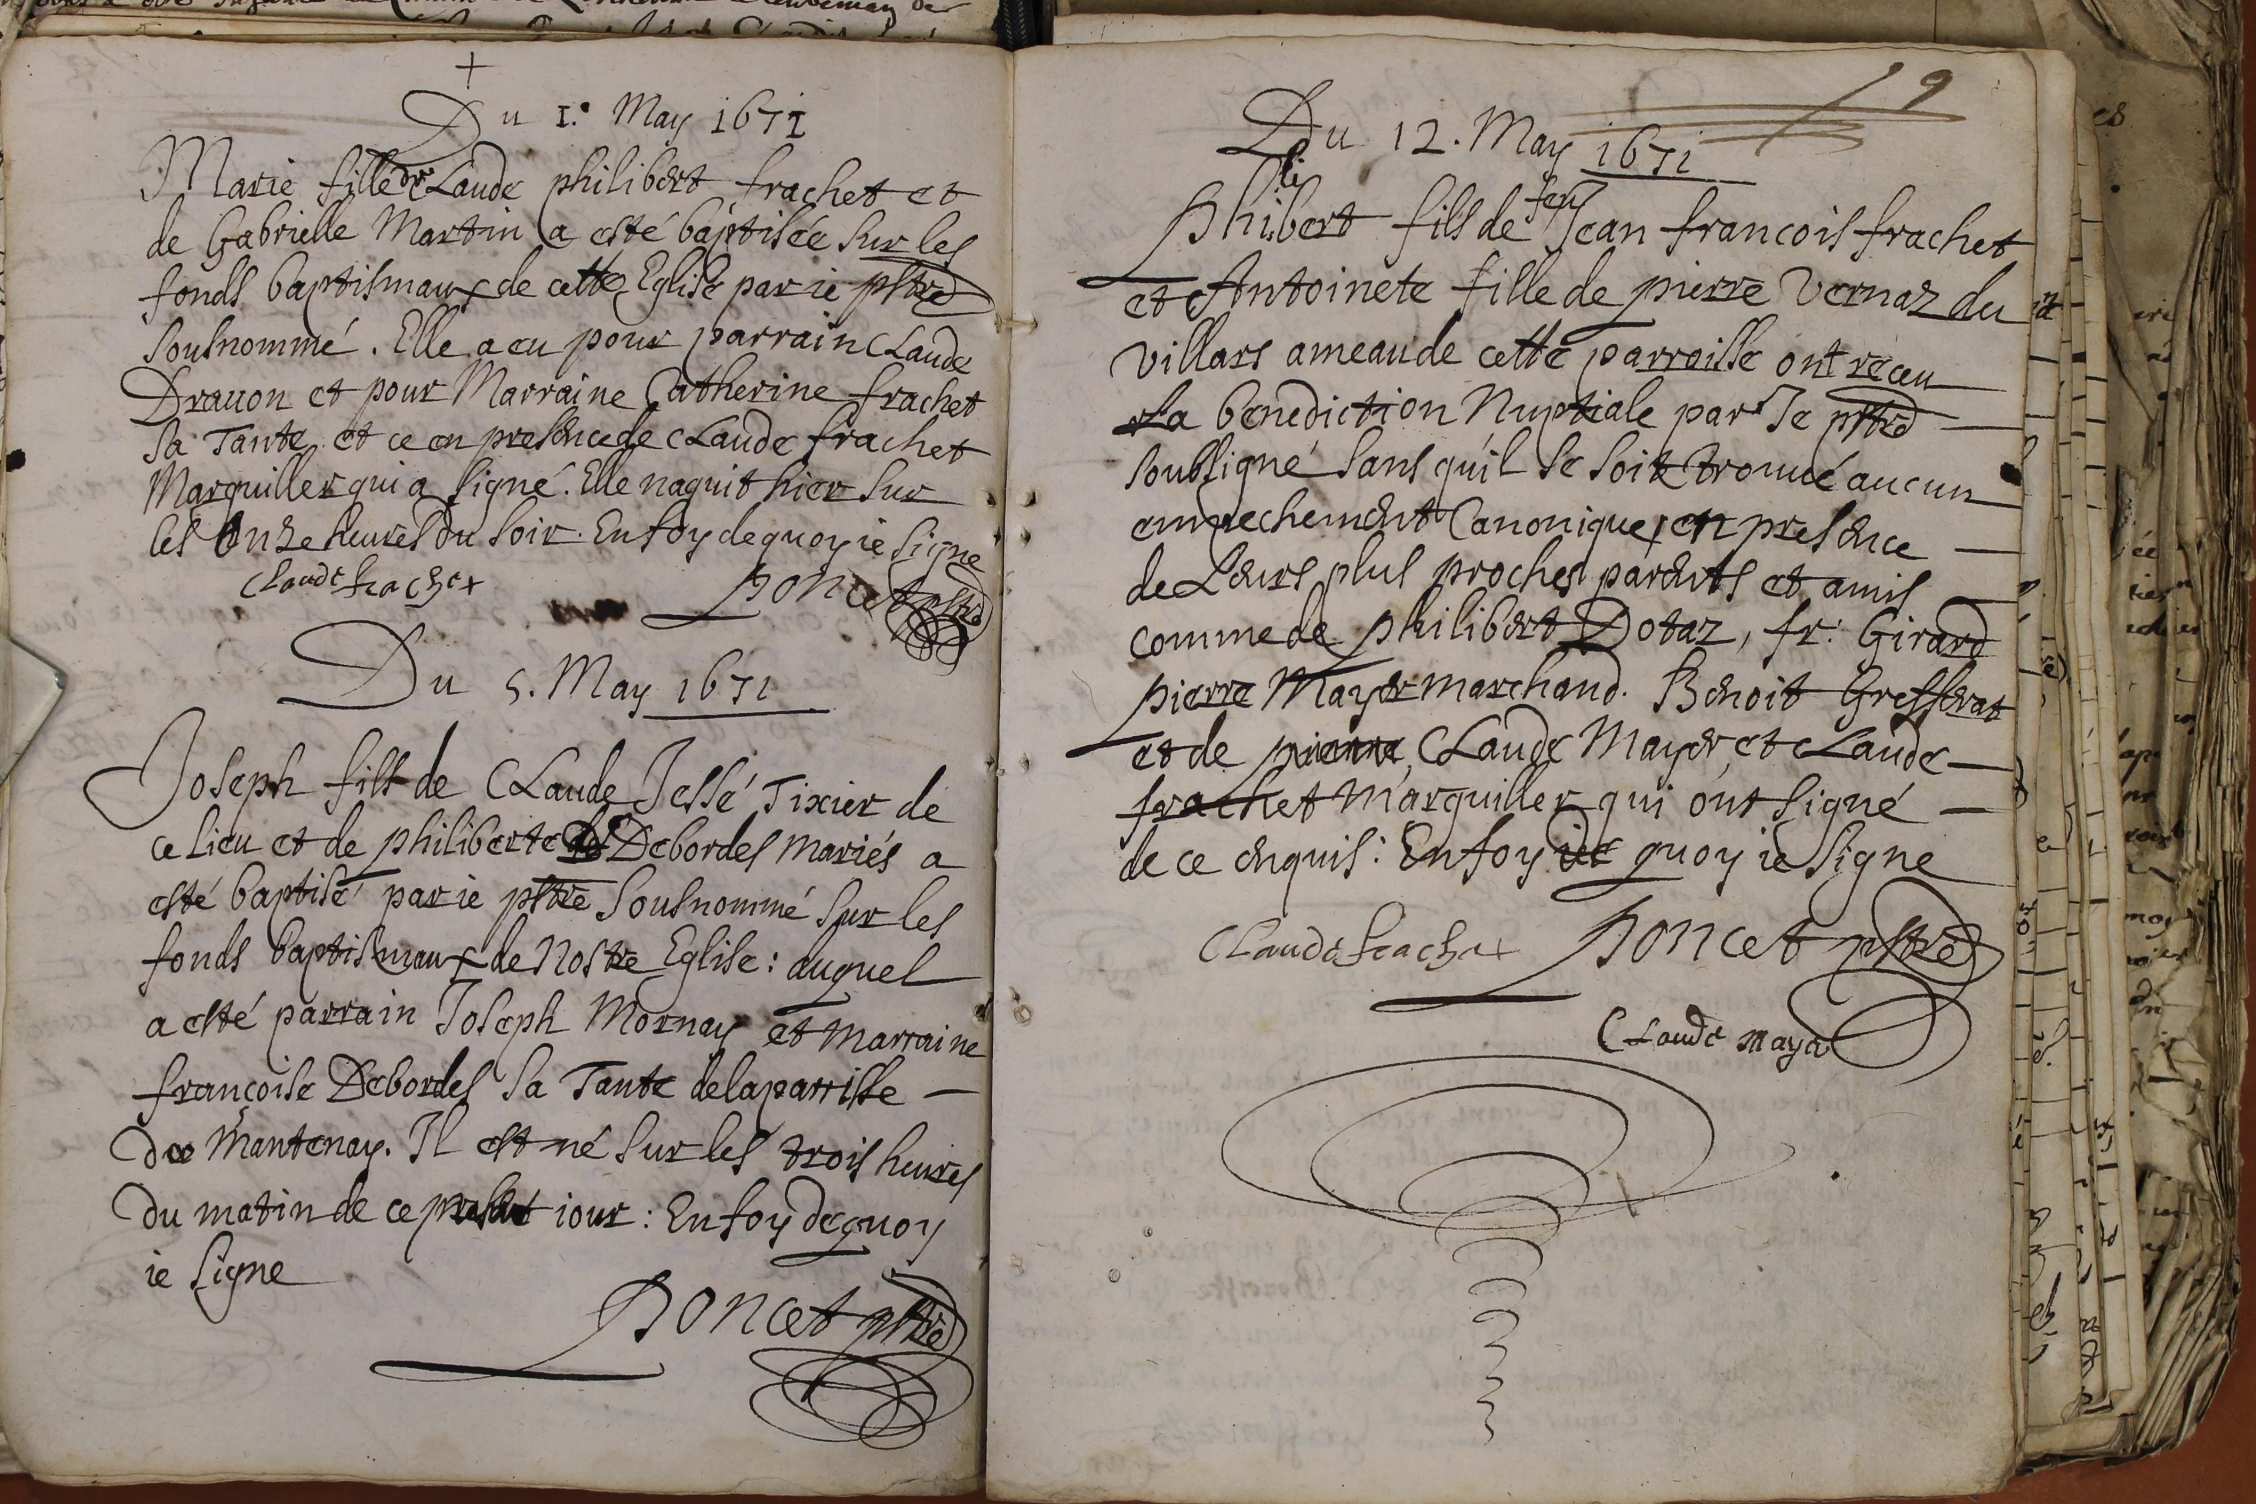 +
Du 1. May 1671
Marie fille de Claude philibert frachet et
de Gabrielle Martin a esté baptisée sur les
fonds baptismaux de cette Eglise par ie pstre
sousnommé. Elle a eu pour parrain Claude
Drauon et pour Marraine Catherine frachet
sa Tante et ce en presence de Claude frachet
Marguiller qui a signé. Elle naquit hier sur
les onze heures du soir. En foy de quoy ie signe
Claude frachet Poncet pstre
Du 5. May 1671
Joseph fils de Claude Jessé Tixier de
ce lieu et de philiberte Debordes mariés a
esté baptisé par ie pstre sousnommé sur les
fonds baptismaux de Nostre Eglise: auquel
a esté parrain Joseph Mornay et Marraine
françoise Debordes sa Tante de la parrisse
de Mantenay. Il est né sur les trois heures
du matin de ce present iour: En foy de quoy
ie signe
Poncet pstre
19
Du 12. May 1671
Philibert fils de feu Jean francois frachet
et Antoinete fille de pierre Vernaz du
villars ameau de cette parroisse ont receu
La benediction Nuptiale par Je pstre
soubsigné sans qu'il se soit trouué aucun
empechement Canonique, en presence
de Leurs plus proches parents et amis
comme de philibert Dotaz, fr: Girard
pierre Mayer marchand. Benoit Grefferat
et de pierre Claude Mayer et Claude
frachet Marguiller qui ont signé
de ce enquis: En foy de quoy ie signe
Claude frachet Poncet pstre
Claude maya